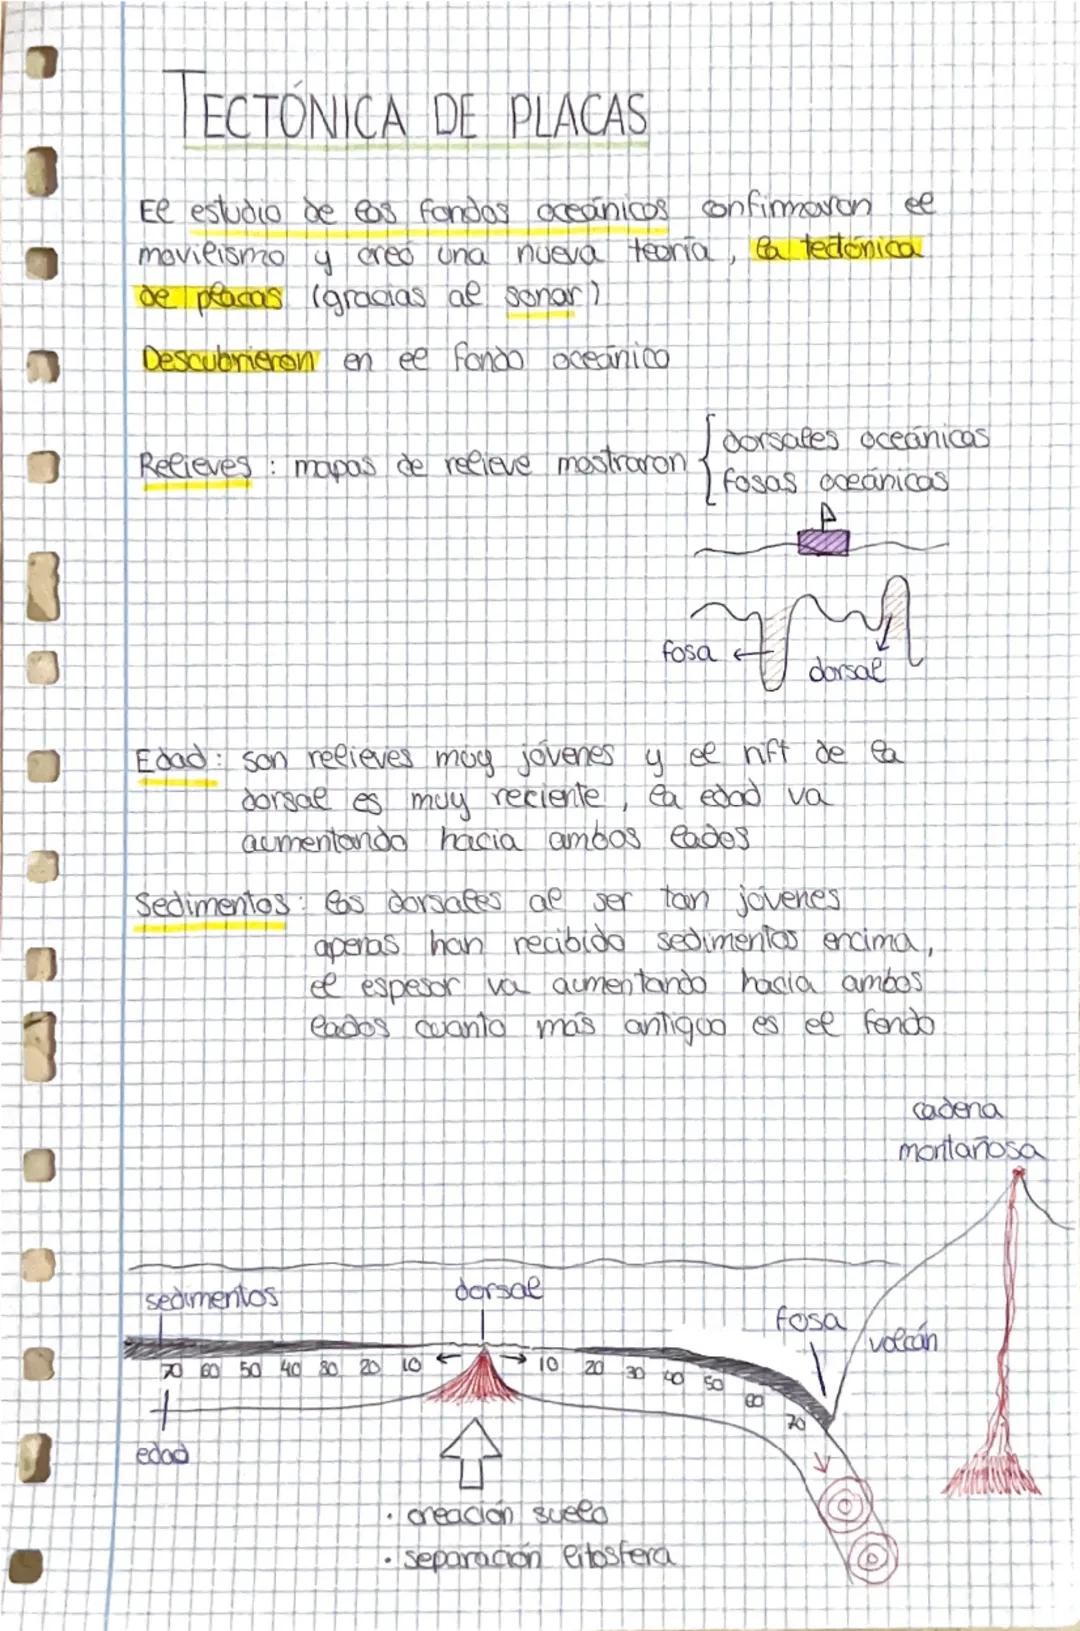 TECTÓNICA DE PLACAS
El estudio de los fondos oceánicos confirmaron el
movilismo y creó una nueva teoría, la tectónica
de placas (gracias al sonar)
Descubrieron en el fondo oceánico
Relieves: mapas de relieve mostraron
dorsales oceánicas
fosas oceánicas
fosa
dorsal
Edad: son relieves muy jóvenes y el rift de la
dorsal es muy reciente, la edad va
aumentando hacia ambos lados
Sedimentos: las dorsales al ser tan jóvenes
apenas han recibido sedimentos encima,
el espesor va aumentando hacia ambos
lados cuanto más antiguo es el fondo
cadena
montañosa
sedimentos
dorsal
fosa
volcán
70 60 50 40 30 20 10 10 20 30 40 50 60 70
edad
· creación suelo
· separación litosfera